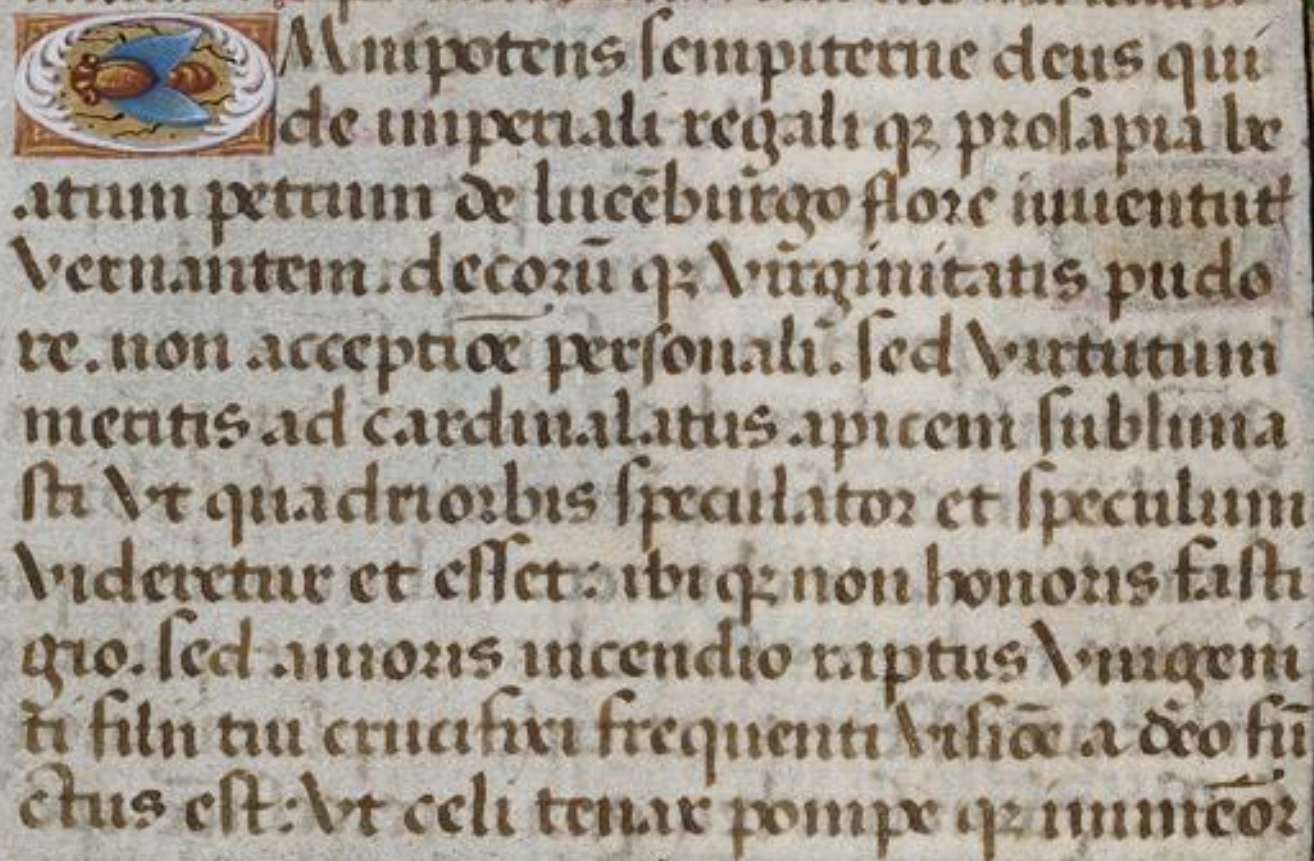 Omnipotens sempiterne deus qui
de imperiali regali qꝫ prosapia be
atum petrum de lucēburgo flore iuuentut
vernantem. decorū qꝫ virginitatis pudo
re. non acceptiōe personali. sed virtutum
meritis ad cardinalatus apicem sublima
sti vt quadriorbis speculator et speculum
videretur et esset: ibi qꝫ non honoris fasti
gio. sed amoris incendio raptus vnigeni
ti filii tui crucifixi frequenti visiōe adeo fū
ctus est: vt celi terrae pompe qꝫ immēor